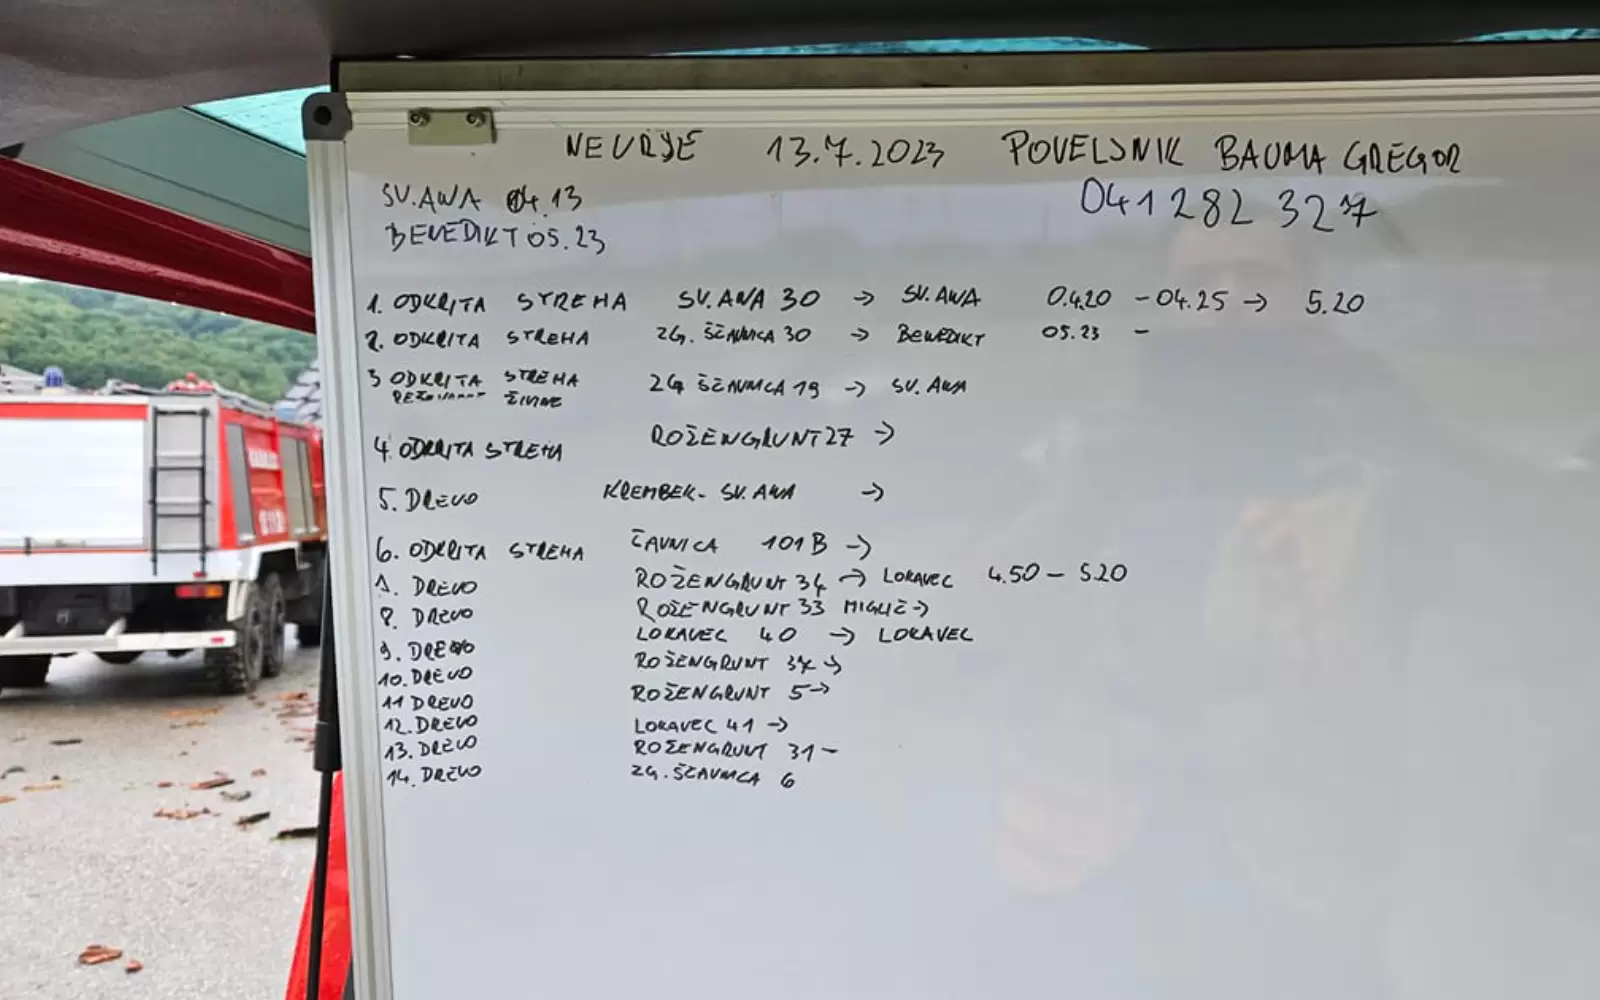 NEURJE 13.7.2023 POVELJNIK BAUMA GREGOR
041 282 327
SV. ANA 04.13
BENEDIKT 05.23
1. ODKRITA STREHA SV. ANA 30 → SV. ANA 0.4.20 - 04.25 → 5.20
2. ODKRITA STREHA ZG. ŠČAVNICA 30 → BENEDIKT 05.23 -
3 ODKRITA STREHA ZG ŠČAVNICA 19 → SV. ANA
ŽIVINE
4. ODKRITA STREHA ROŽENGRUNT 27 →
5. DREVO KREMBEK - SV. ANA →
6. ODKRITA STREHA ČAVNICA 101B →
7. DREVO ROŽENGRUNT 34 → LOKAVEC 4.50 - 5.20
8. DREVO ROŽENGRUNT 33 MIGLIČ →
9. DREVO LOKAVEC 40 → LOKAVEC
10. DREVO ROŽENGRUNT 37 →
11 DREVO ROŽENGRUNT 5 →
12. DREVO LOKAVEC 41 →
13. DREVO ROŽENGRUNT 31 -
14. DREVO ZG. ŠČAVNICA 6